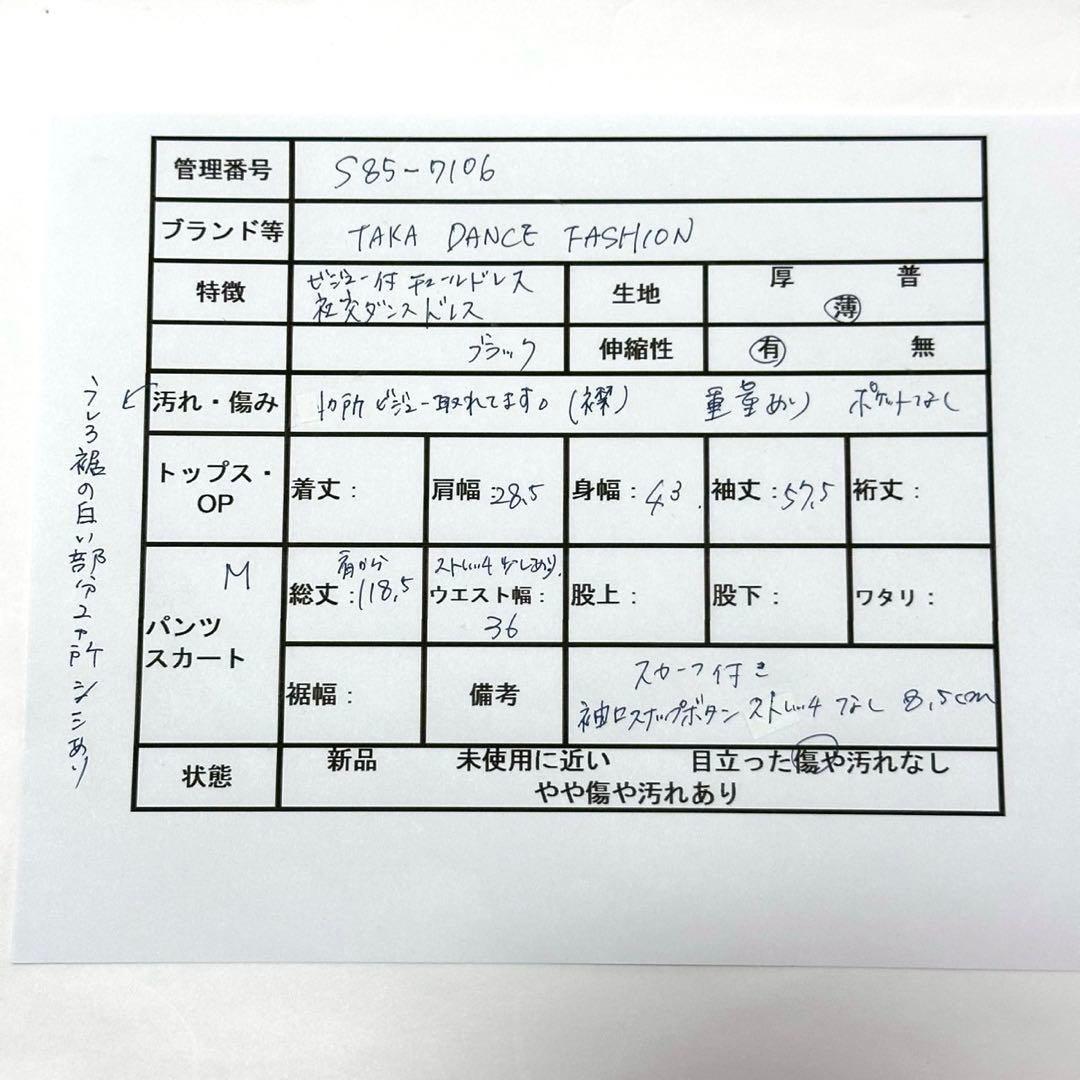 管理番号 S85-7106
ブランド等 TAKA DANCE FASHION
特徴 ビジュー付チュールドレス
社交ダンスドレス
生地 厚 普
薄
ブラック
伸縮性 有 無
汚れ・傷み 1カ所ビジュー取れてます。(襟) 重量あり ポケットなし
うしろ裾の白い部分2ヶ所シミあり
トップス・OP 着丈: 肩幅:28.5 身幅:43. 袖丈:57.5 裄丈:
M
パンツ
スカート
肩から
総丈:118.5
ストレッチ少しあり.
ウエスト幅:
36
股上: 股下: ワタリ:
裾幅: 備考
スカーフ付き
袖口スナップボタン ストレッチなし 8.5cm
状態 新品 未使用に近い 目立った傷や汚れなし
やや傷や汚れあり